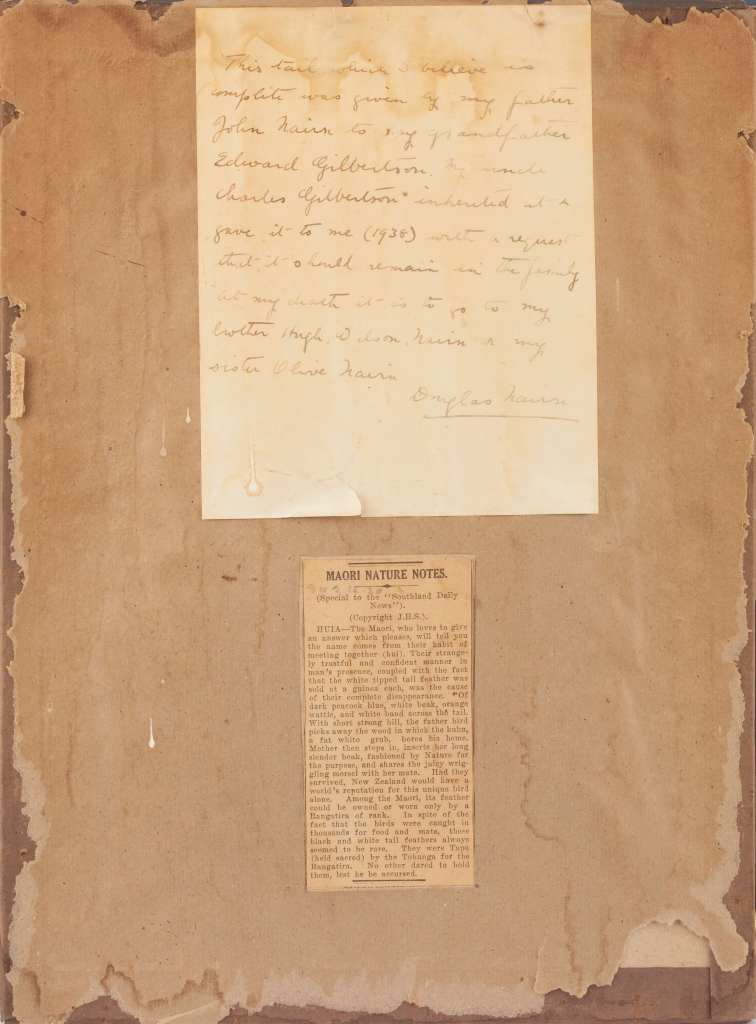 This tail which I believe is
complite was given by my father
John Nairn to my grandfather
Edward Gilbertson. My uncle
Charles Gilbertson inherited it &
gave it to me (1938) with a request
that it should remain in the family
at my death it is to go to my
brother Hugh Nairn or my
sister Olive Nairn
Douglas Nairn
MAORI NATURE NOTES.
(Special to the "Southland Daily
News").
(Copyright J.H.S.).
HUIA—The Maori, who loves to give
an answer which pleases, will tell you
the name comes from their habit of
meeting together (hui). Their strange-
ly trustful and confident manner in
man's presence, coupled with the fact
that the white tipped tail feather was
sold at a guinea each, was the cause
of their complete disappearance. "Of
dark peacock blue, white beak, orange
wattle, and white band across the tail.
With short strong bill, the father bird
picks away the wood in which the huhu,
a fat white grub, bores his home.
Mother then steps in, inserts her long
slender beak, fashioned by Nature for
the purpose, and shares the juicy wrig-
gling morsel with her mate. Had they
survived, New Zealand would have a
world's reputation for this unique bird
alone. Among the Maori, its feather
could be owned or worn only by a
Rangatira of rank. In spite of the
fact that the birds were caught in
thousands for food and mats, these
black and white tail feathers always
seemed to be rare. They were Tapu
(held sacred) by the Tohunga for the
Rangatira. No other dared to hold
them, lest he be accursed.